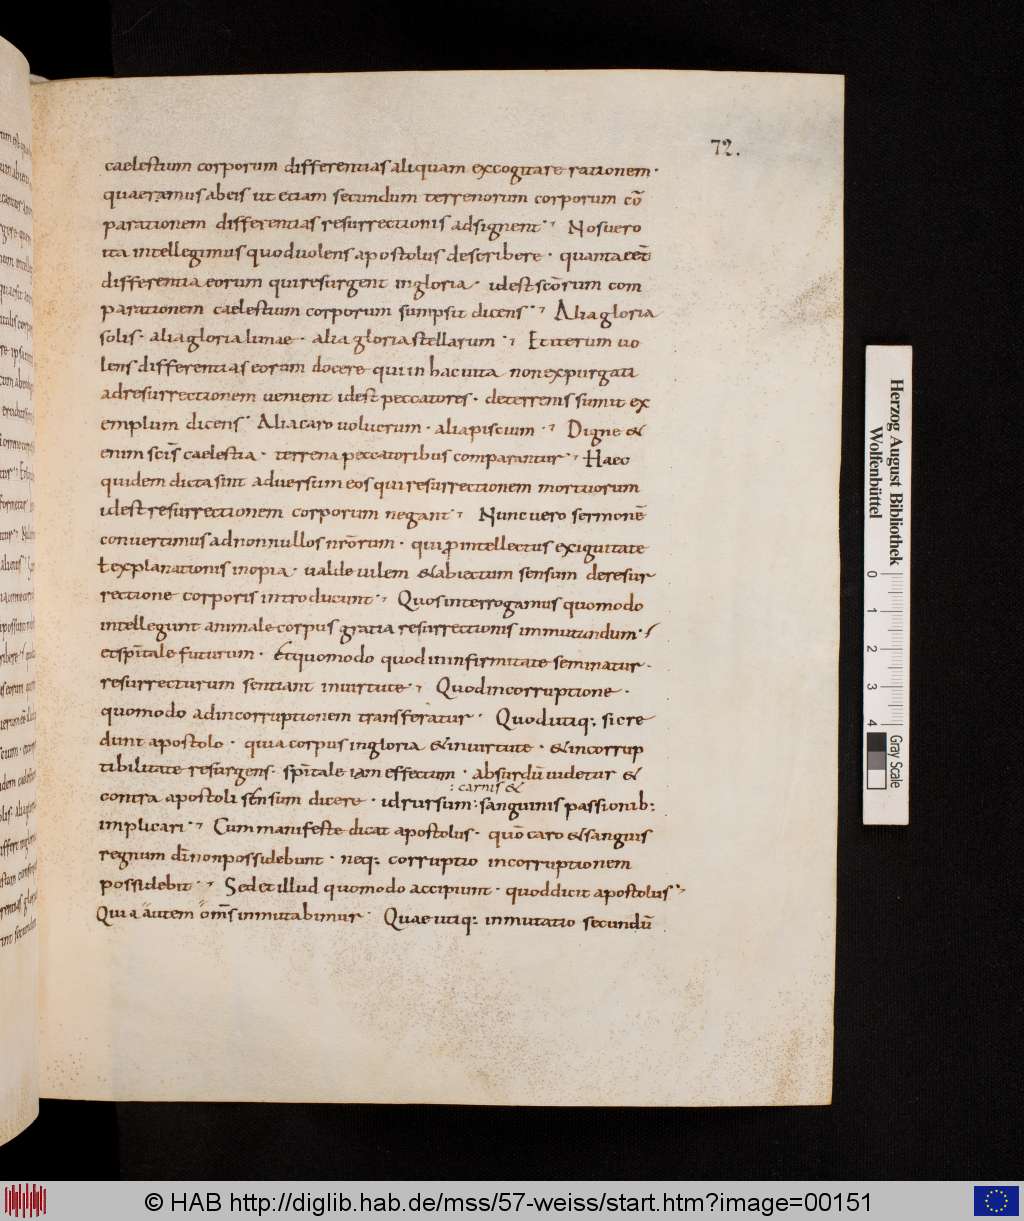 72.
caelestium corporum differentias aliquam excogitare rationem ·
quaeramus ab eis ut etiam secundum terrenorum corporum cō
parationem differentias resurrectionis adsignent · Nos uero
ita intellegimus quod uolens apostolus describere · quanta eēt
differentia eorum qui resurgent in gloria · id est scōrum com
parationem caelestium corporum sumpsit dicens · Alia gloria
solis · alia gloria lunae · alia gloria stellarum · Et iterum uo
lens differentias eorum docere qui in hac uita non expurgati
ad resurrectionem uenient id est peccatores · de terrenis sumit ex
emplum dicens · Alia caro uolucrum · alia piscium · Digne &
enim scīs caelestia · terrena peccatoribus comparantur · Haec
quidem dicta sint aduersum eos qui resurrectionem mortuorum
id est resurrectionem corporum negant · Nunc uero sermonē
conuertimus ad nonnullos nrōrum · qui ꝓ intellectus exiguitate
ł explanationis inopia · ualde uilem & abiectum sensum de resur
rectione corporis introducunt · Quos interrogamus quomodo
intellegunt animale corpus gratia resurrectionis immutandum ·
et spītale futurum · Et quomodo quod in infirmitate seminatur ·
resurrecturum sentiant in uirtute · Quod in corruptione ·
quomodo ad incorruptionem transferatur · Quod utiq; si cre
dunt apostolo · quia corpus in gloria & in uirtute · & incorrup
tibilitate resurgens · spītale iam effectum · absurdū uidetur &
: carnis &
contra apostoli sensum dicere · id rursum : sanguinis passionib;
implicari · Cum manifeste dicat apostolus · quō caro & sanguis
regnum dī non possidebunt · neq; corruptio incorruptionem
possidebit · Sed et illud quomodo accipiunt · quod dicit apostolus ·
Quia autem om̄s inmutabimur · Quae utiq; inmutatio secundū
Herzog August Bibliothek
Wolfenbüttel
0 1 2 3 4 Gray Scale
© HAB http://diglib.hab.de/mss/57-weiss/start.htm?image=00151